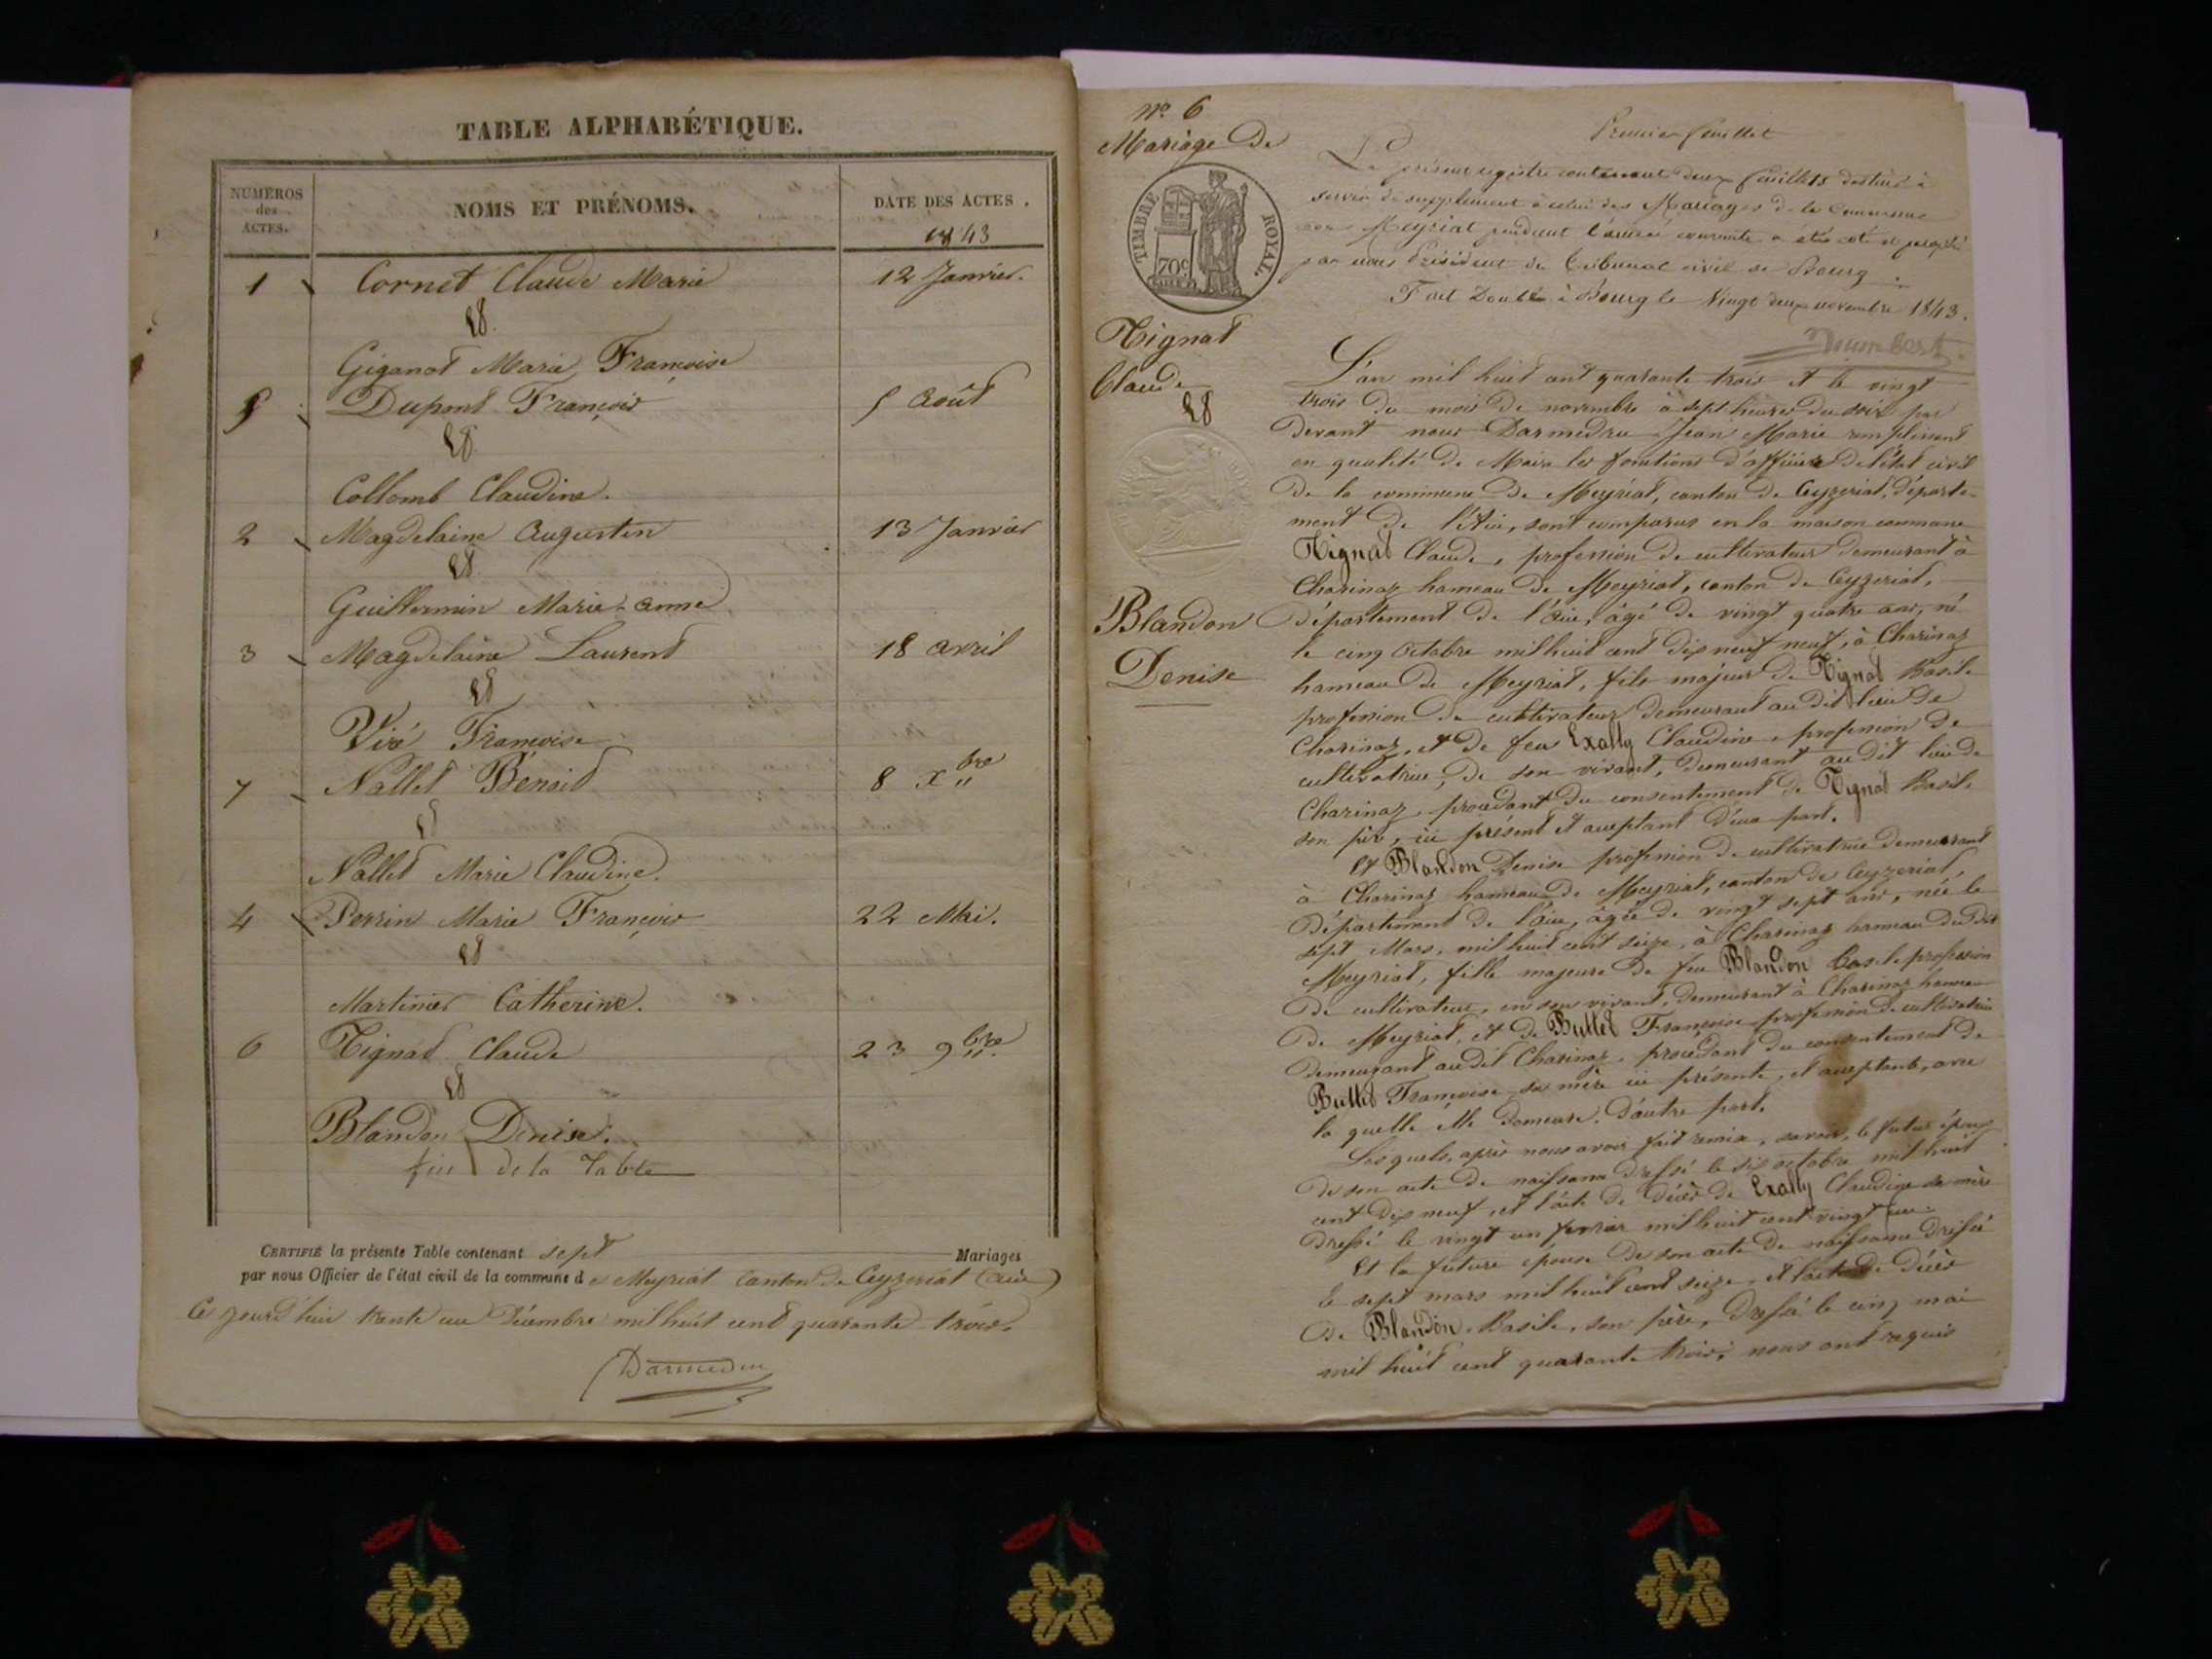 TABLE ALPHABÉTIQUE.
NUMÉROS des ACTES.
NOMS ET PRÉNOMS.
DATE DES ACTES.
1843
1 Cornet Claude Marie 12 Janvier.
Et
Giganot Marie Françoise
5 Dupont François 5 Août
Et
Collomb Claudine.
2 Magdelaine Augustin 13 Janvier
Et
Guillermin Marie-Anne
3 Magdelaine Laurent 18 avril
Et
Viré Françoise
7 Nallet Benoit 8 Xbre
Et
Nallet Marie Claudine.
4 Perrin Marie François 22 Mai.
Et
Martinier Catherine.
6 Tignat Claude 23 9bre
Et
Blandon Denise.
fin de la Table
CERTIFIÉ la présente Table contenant sept Mariages
par nous Officier de l'état civil de la commune de Meyriat Canton de Ceyzeriat (ain)
Ce jourd'hui trente un Décembre mil huit cent quarante trois.
Darmedru
No 6
Mariage de
TIMBRE ROYAL
70c
Tignat
Claude
Et
Blandon
Denise
Premier feuillet
Le présent registre contenant deux feuillets destiné à
servir de supplément à celui des Mariages de la Commune
de Meyriat pendant l'année courante a été coté et paraphé
par nous Président du Tribunal civil de Bourg.
Fait Double à Bourg le Vingt deux novembre 1843.
L'an mil huit cent quarante trois et le vingt
trois du mois de novembre à sept heures du soir par
devant nous Darmedru Jean Marie remplissant
en qualité de Maire les fonctions d'officier de l'état civil
de la commune de Meyriat, canton de Ceyzeriat, départe-
ment de l'Ain, sont comparus en la maison commune
Tignat Claude, profession de cultivateur demeurant à
Charinaz hameau de Meyriat, canton de Ceyzeriat,
département de l'ain, âgé de vingt quatre ans, né
le cinq Octobre mil huit cent dix neuf neuf, à Charinaz
hameau de Meyriat, fils majeur de Tignat Basile
profession de cultivateur demeurant au dit lieu de
Charinaz, et de feu Exally Claudine, profession de
cultivatrice, de son vivant, demeurant au dit lieu de
Charinaz, procédant du consentement de Tignat Basile
son père, ici présent et acceptant d'une part.
Et Blandon Denise profession de cultivatrice demeurant
à Charinaz hameau de Meyriat, canton de Ceyzeriat,
département de l'ain, âgée de vingt sept ans, née le
sept Mars, mil huit cent seize, à Charinaz hameau du dit
Meyriat, fille majeure de feu Blandon Basile profession
de cultivateur, en son vivant, demeurant à Charinaz hameau
de Meyriat, et de Buttet Françoise profession de cultivatrice
demeurant au dit Charinaz, procédant du consentement de
Buttet Françoise sa mère ici présente, et acceptante, avec
la quelle elle demeure, d'autre part.
Les quels, après nous avoir fait remise, savoir, le futur époux
de son acte de naissance dressé le six octobre mil huit
cent dix neuf, et l'acte de décès de Exally Claudine sa mère
dressé le vingt un fevrier mil huit cent vingt un.
Et la future épouse de son acte de naissance dressé
le sept mars mil huit cent seize, et l'acte de décès
de Blandon Basile, son père, dressé le cinq mai
mil huit cent quarante trois, nous ont requis